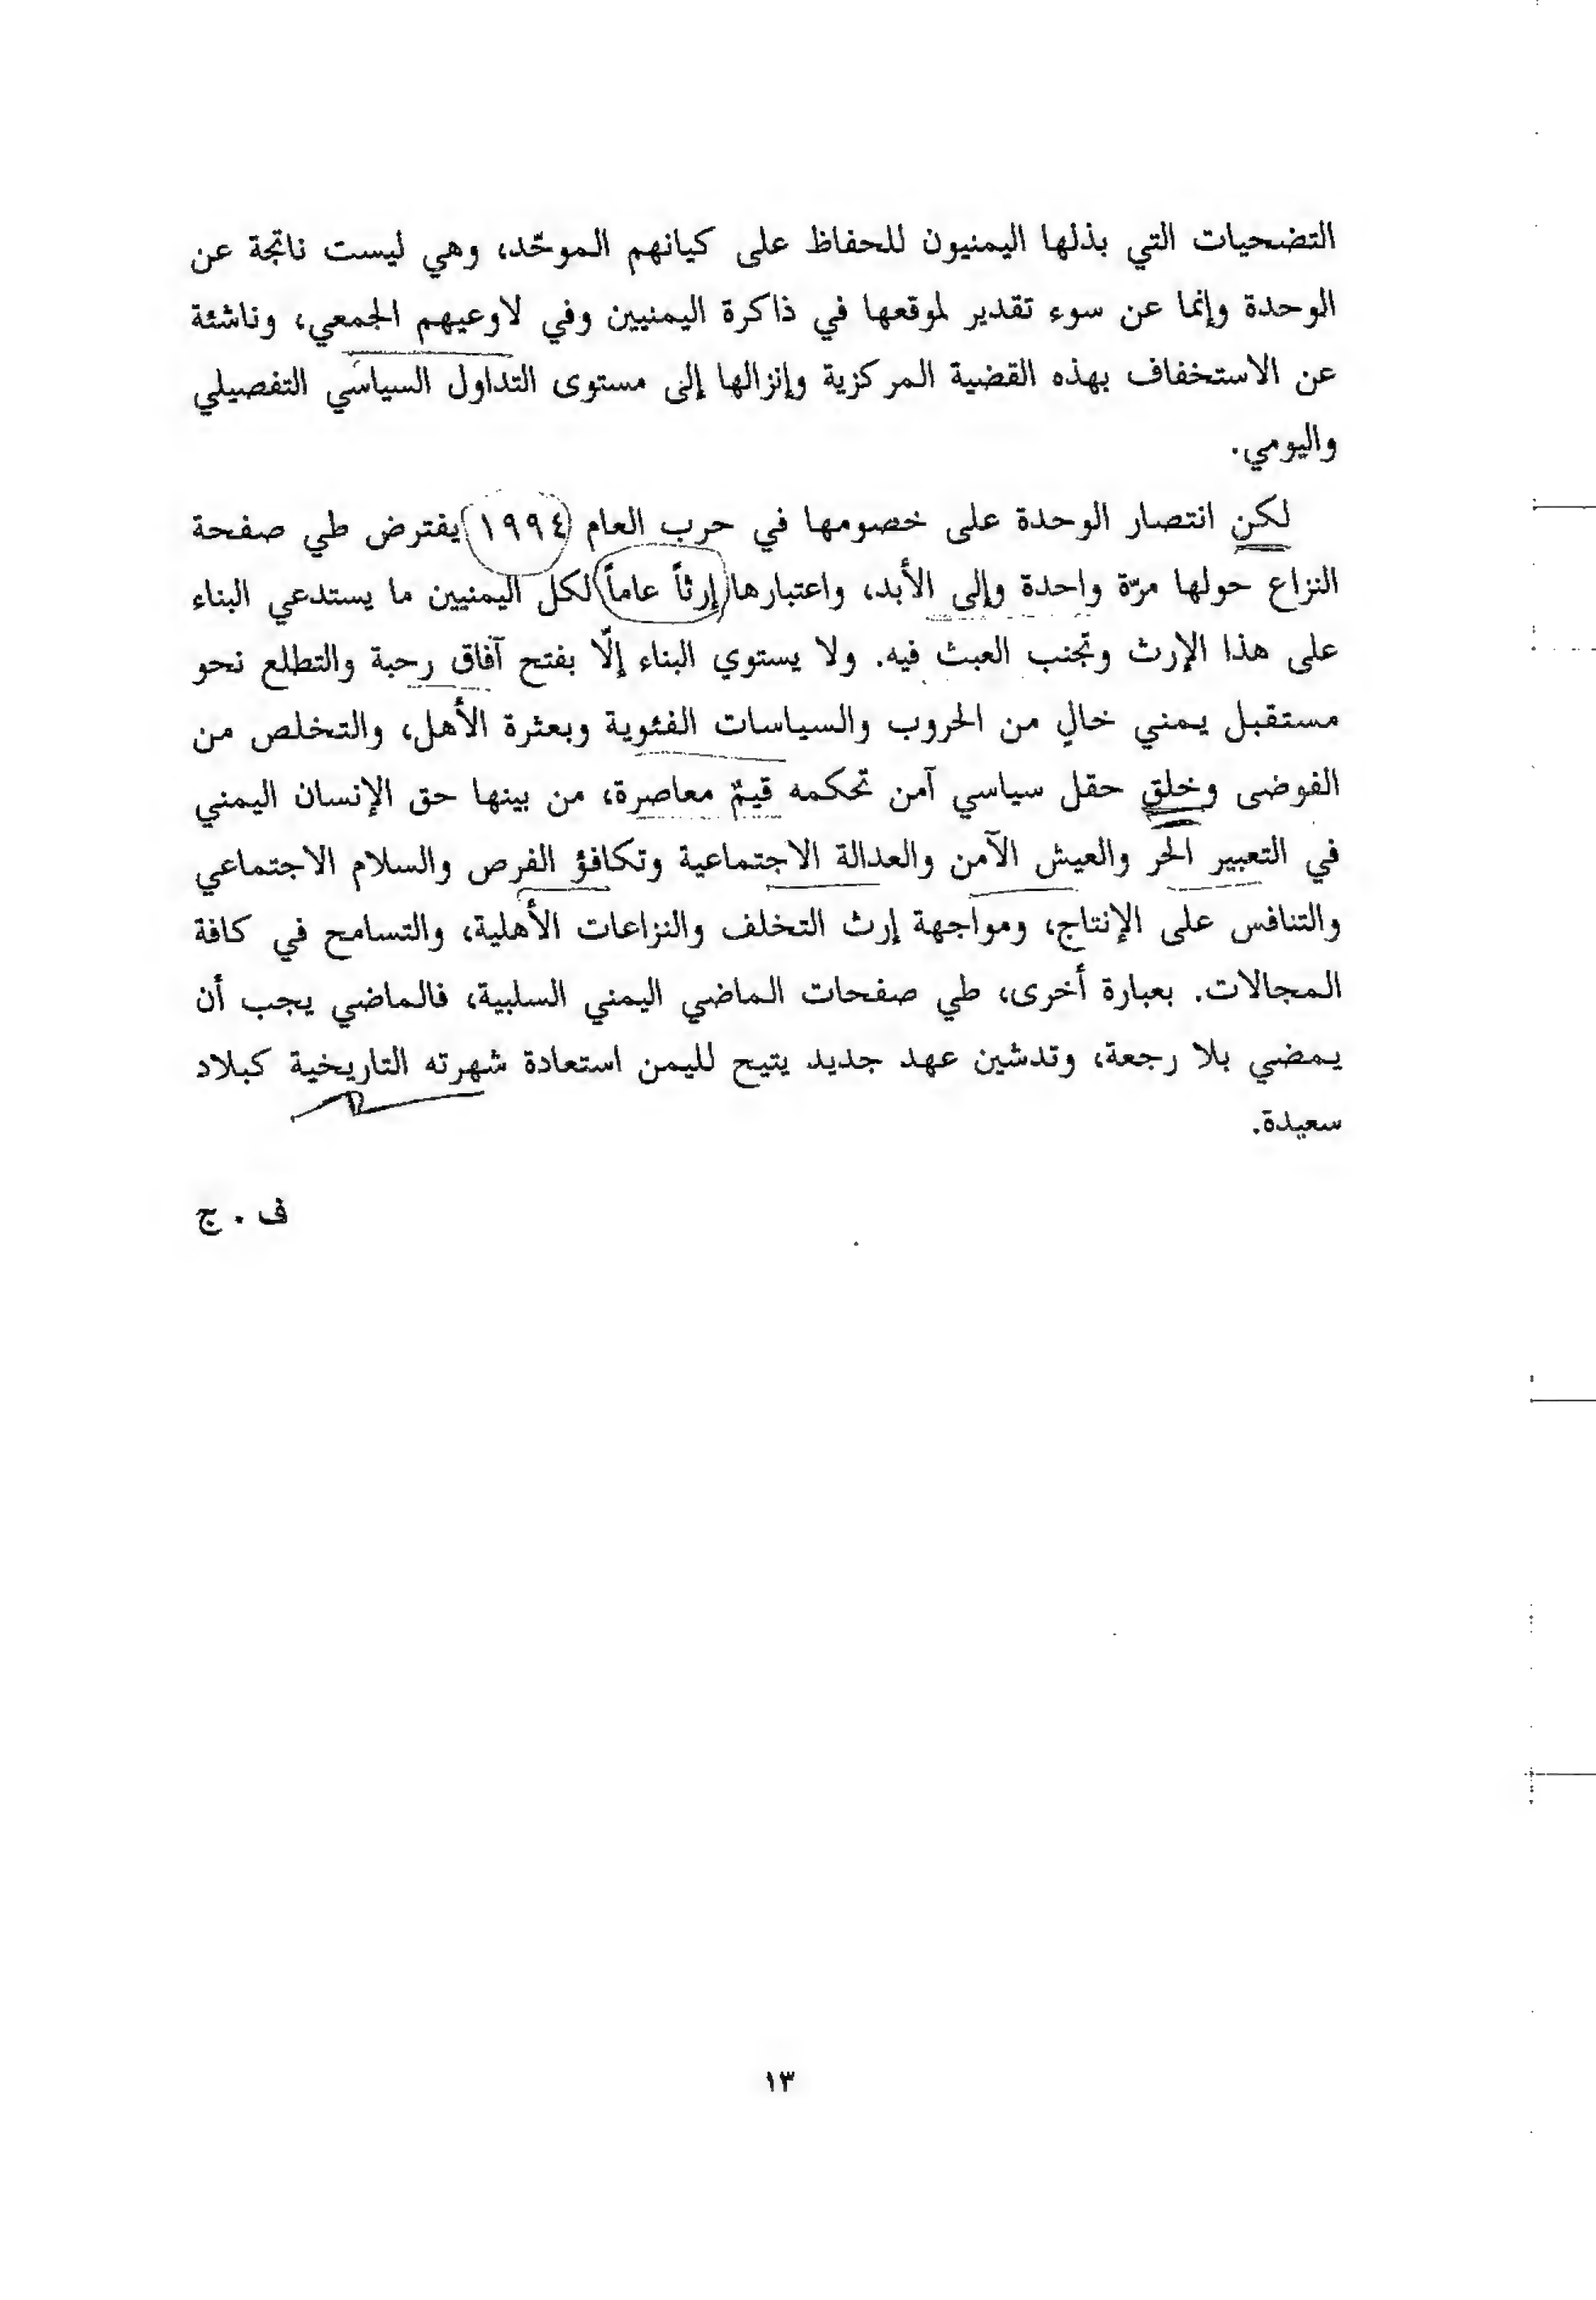 التضحيات التي بذلها اليمنيون للحفاظ على كيانهم الموحّد، وهي ليست ناتجة عن
الوحدة وإنما عن سوء تقدير لموقعها في ذاكرة اليمنيين وفي لاوعيهم الجمعي، وناشئة
عن الاستخفاف بهذه القضية المركزية وإنزالها إلى مستوى التداول السياسي التفصيلي
واليومي.
لكن انتصار الوحدة على خصومها في حرب العام (١٩٩٤) يفترض طي صفحة
النزاع حولها مرّة واحدة وإلى الأبد، واعتبارها إرثاً عاماً لكل اليمنيين ما يستدعي البناء
على هذا الإرث وتجنب العبث فيه. ولا يستوي البناء إلّا بفتح آفاق رحبة والتطلع نحو
مستقبل يمني خالٍ من الحروب والسياسات الفئوية وبعثرة الأهل، والتخلص من
الفوضى وخلق حقل سياسي آمن تحكمه قيمٌ معاصرة، من بينها حق الإنسان اليمني
في التعبير الحر والعيش الآمن والعدالة الاجتماعية وتكافؤ الفرص والسلام الاجتماعي
والتنافس على الإنتاج، ومواجهة إرث التخلف والنزاعات الأهلية، والتسامح في كافة
المجالات. بعبارة أخرى، طي صفحات الماضي اليمني السلبية، فالماضي يجب أن
يمضي بلا رجعة، وتدشين عهد جديد يتيح لليمن استعادة شهرته التاريخية كبلاد
سعيدة.
ف . ج
١٣